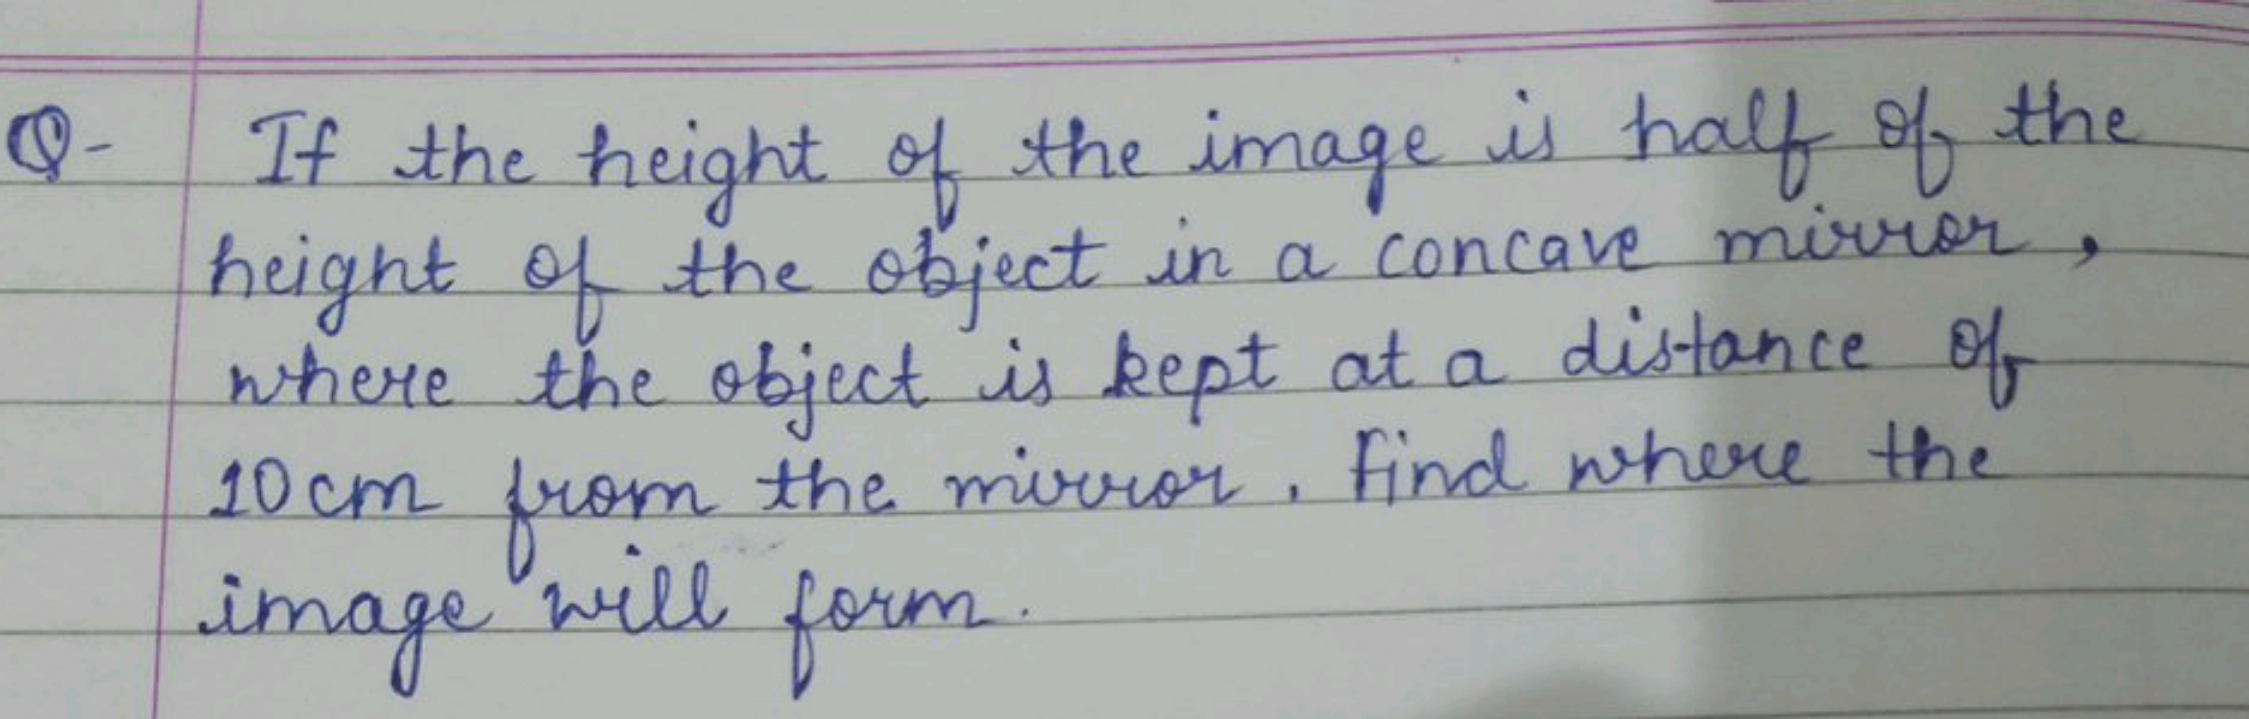 Q- If the height of the image is half of the
height of the object in a concave mirror,
where the object is kept at a distance of
10cm from the mirror. Find where the
image will form.